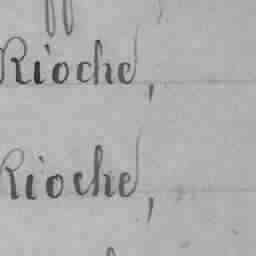 Rioché,
Rioché,